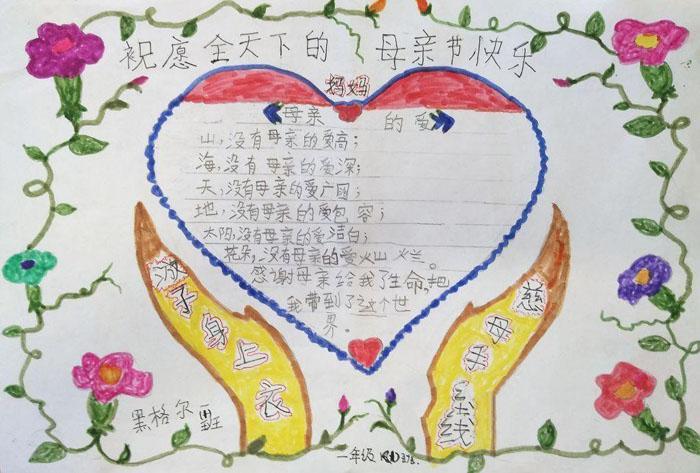 祝愿全天下的妈妈母亲节快乐
母亲的爱
山，没有母亲的爱高；
海，没有母亲的爱深；
天，没有母亲的爱广阔；
地，没有母亲的爱包容；
太阴，没有母亲的爱洁白；
花朵，没有母亲的爱火山烂。
感谢母亲给我了生命，把
我带到了这个世
界。
慈母手中线
游子身上衣
黑格尔
一年级